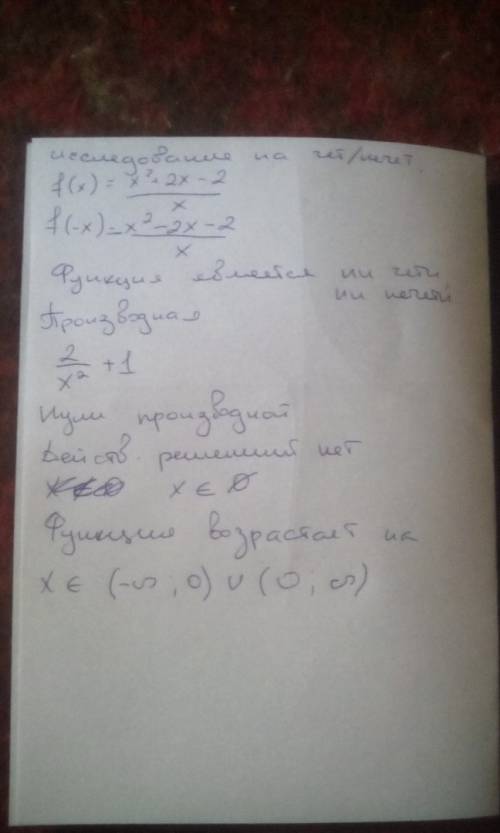 исследование на чет/нечет.
f(x) = x²+2x-2
x
f(-x) = x²-2x-2
x
Функция является ни четн.
ни нечетн
Производная
2/x² + 1
Нули производной
Действ. решений нет
x ∈ ∅
Функция возрастает на
x ∈ (-∞, 0) ∪ (0, ∞)